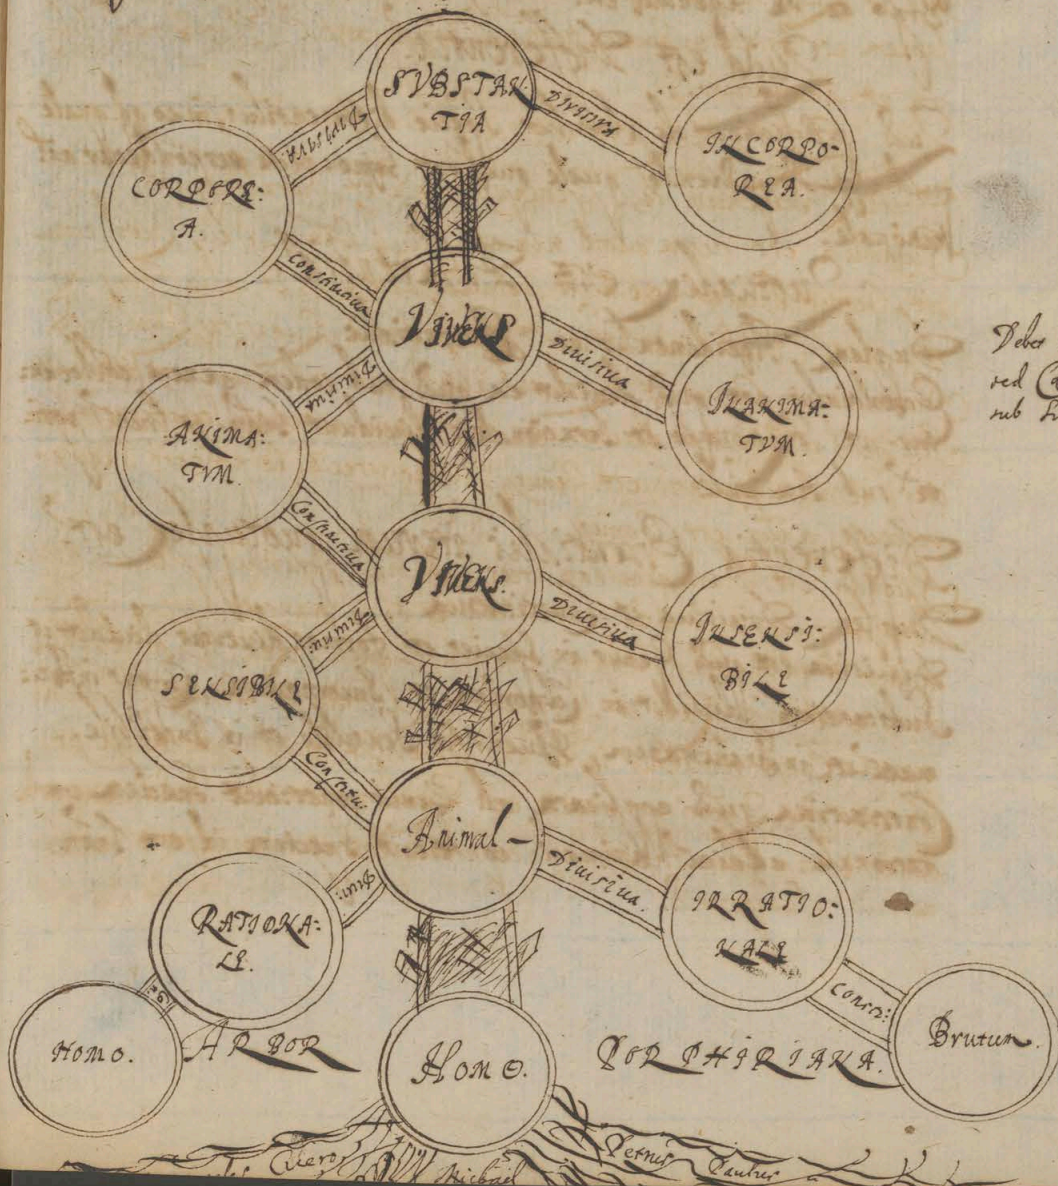 SVBSTAN
TIA
Divisiva
Divisiva
INCORPO-
REA.
CORPORE:
A.
Constitutiua
VIVENS
Diuisiua
Diuisiua
Debet
sed
sub
INANIMA:
TVM.
ANIMA:
TVM.
Constitutiua
VIVENS.
Diuisiu:
Diuisiua
INSENSI:
BILE
SENSIBILE
Constitu:
Animal
Diui:
Diuisiua.
RATIONA:
LE.
IRRATIO:
NALE
Cons:
HOMO.
ARBOR
HOMO.
PORPHIRIANA.
Brutum.
Cicero
Michael
Petrus
Paulus